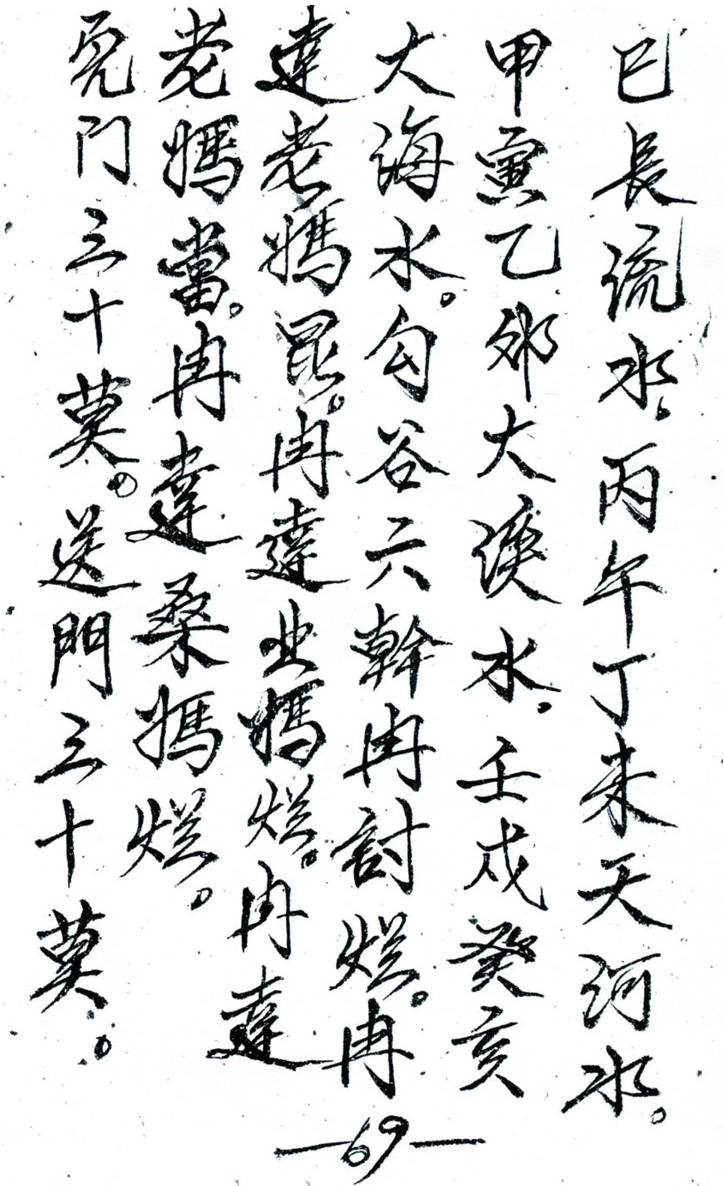 巳長流水。丙午丁未天河水。
甲寅乙卯大溪水。壬戌癸亥
大海水。勾谷六幹冉討烂。冉
達老媽昆。冉達业媽烂。冉達
老媽當。冉達桑媽烂。
免门三十莫。送門三十莫。
—69—